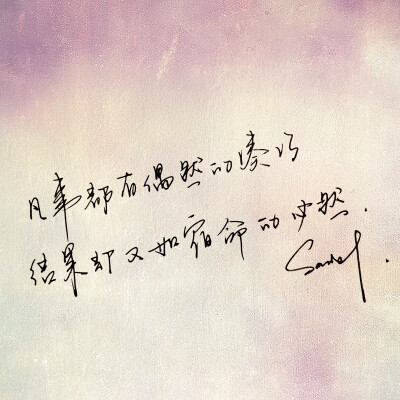 凡事都有偶然的凑巧
结果却又如宿命的必然.